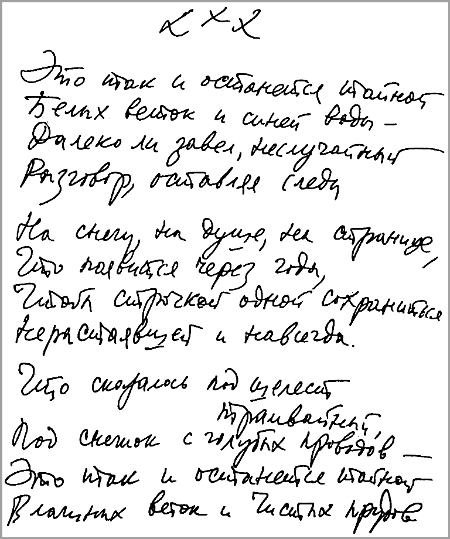 * * *
Это так и останется тайной
Белых веток и синей воды –
Далеко ли завел, неслучайный
Разговор, оставляя следы
На снегу, на душе, на странице,
Что появится через годы,
Чтобы строчкой одной сохраниться
Нерастаявшей и навсегда.
Что сказалось под шелест
трамвайный,
Под снежок с голубых проводов –
Это так и останется тайной
Влажных веток и Чистых прудов